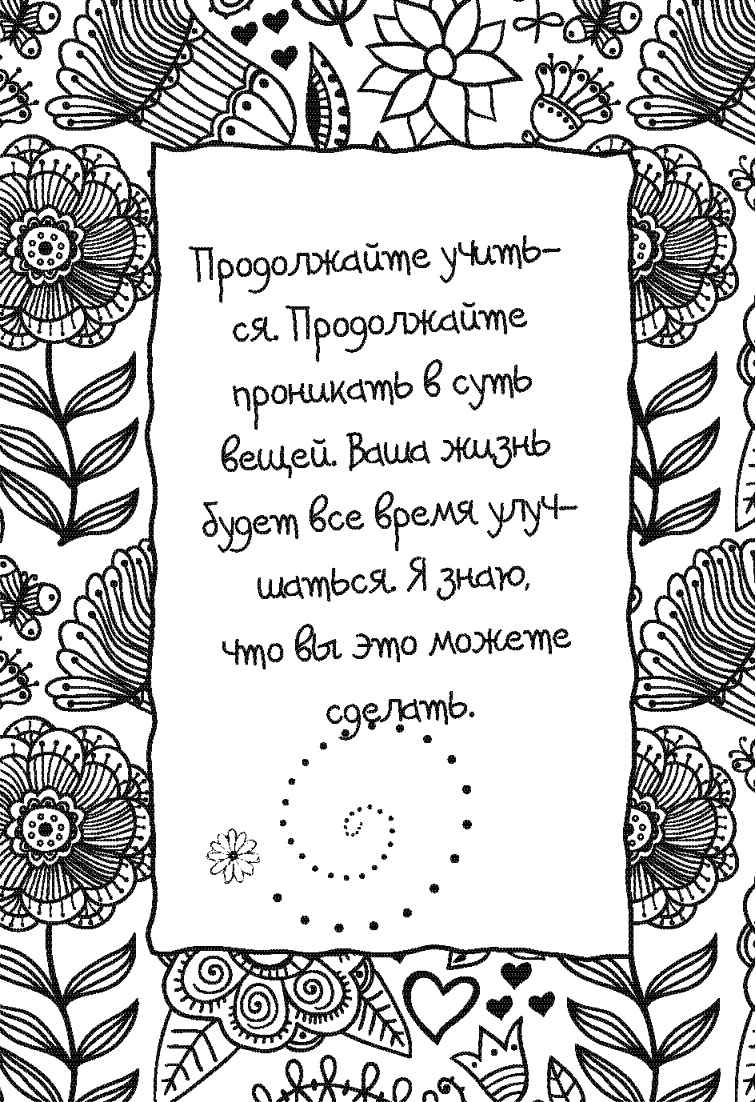 Продолжайте учить-
ся. Продолжайте
проникать в суть
вещей. Ваша жизнь
будет все время улуч-
шаться. Я знаю,
что вы это можете
сделать.